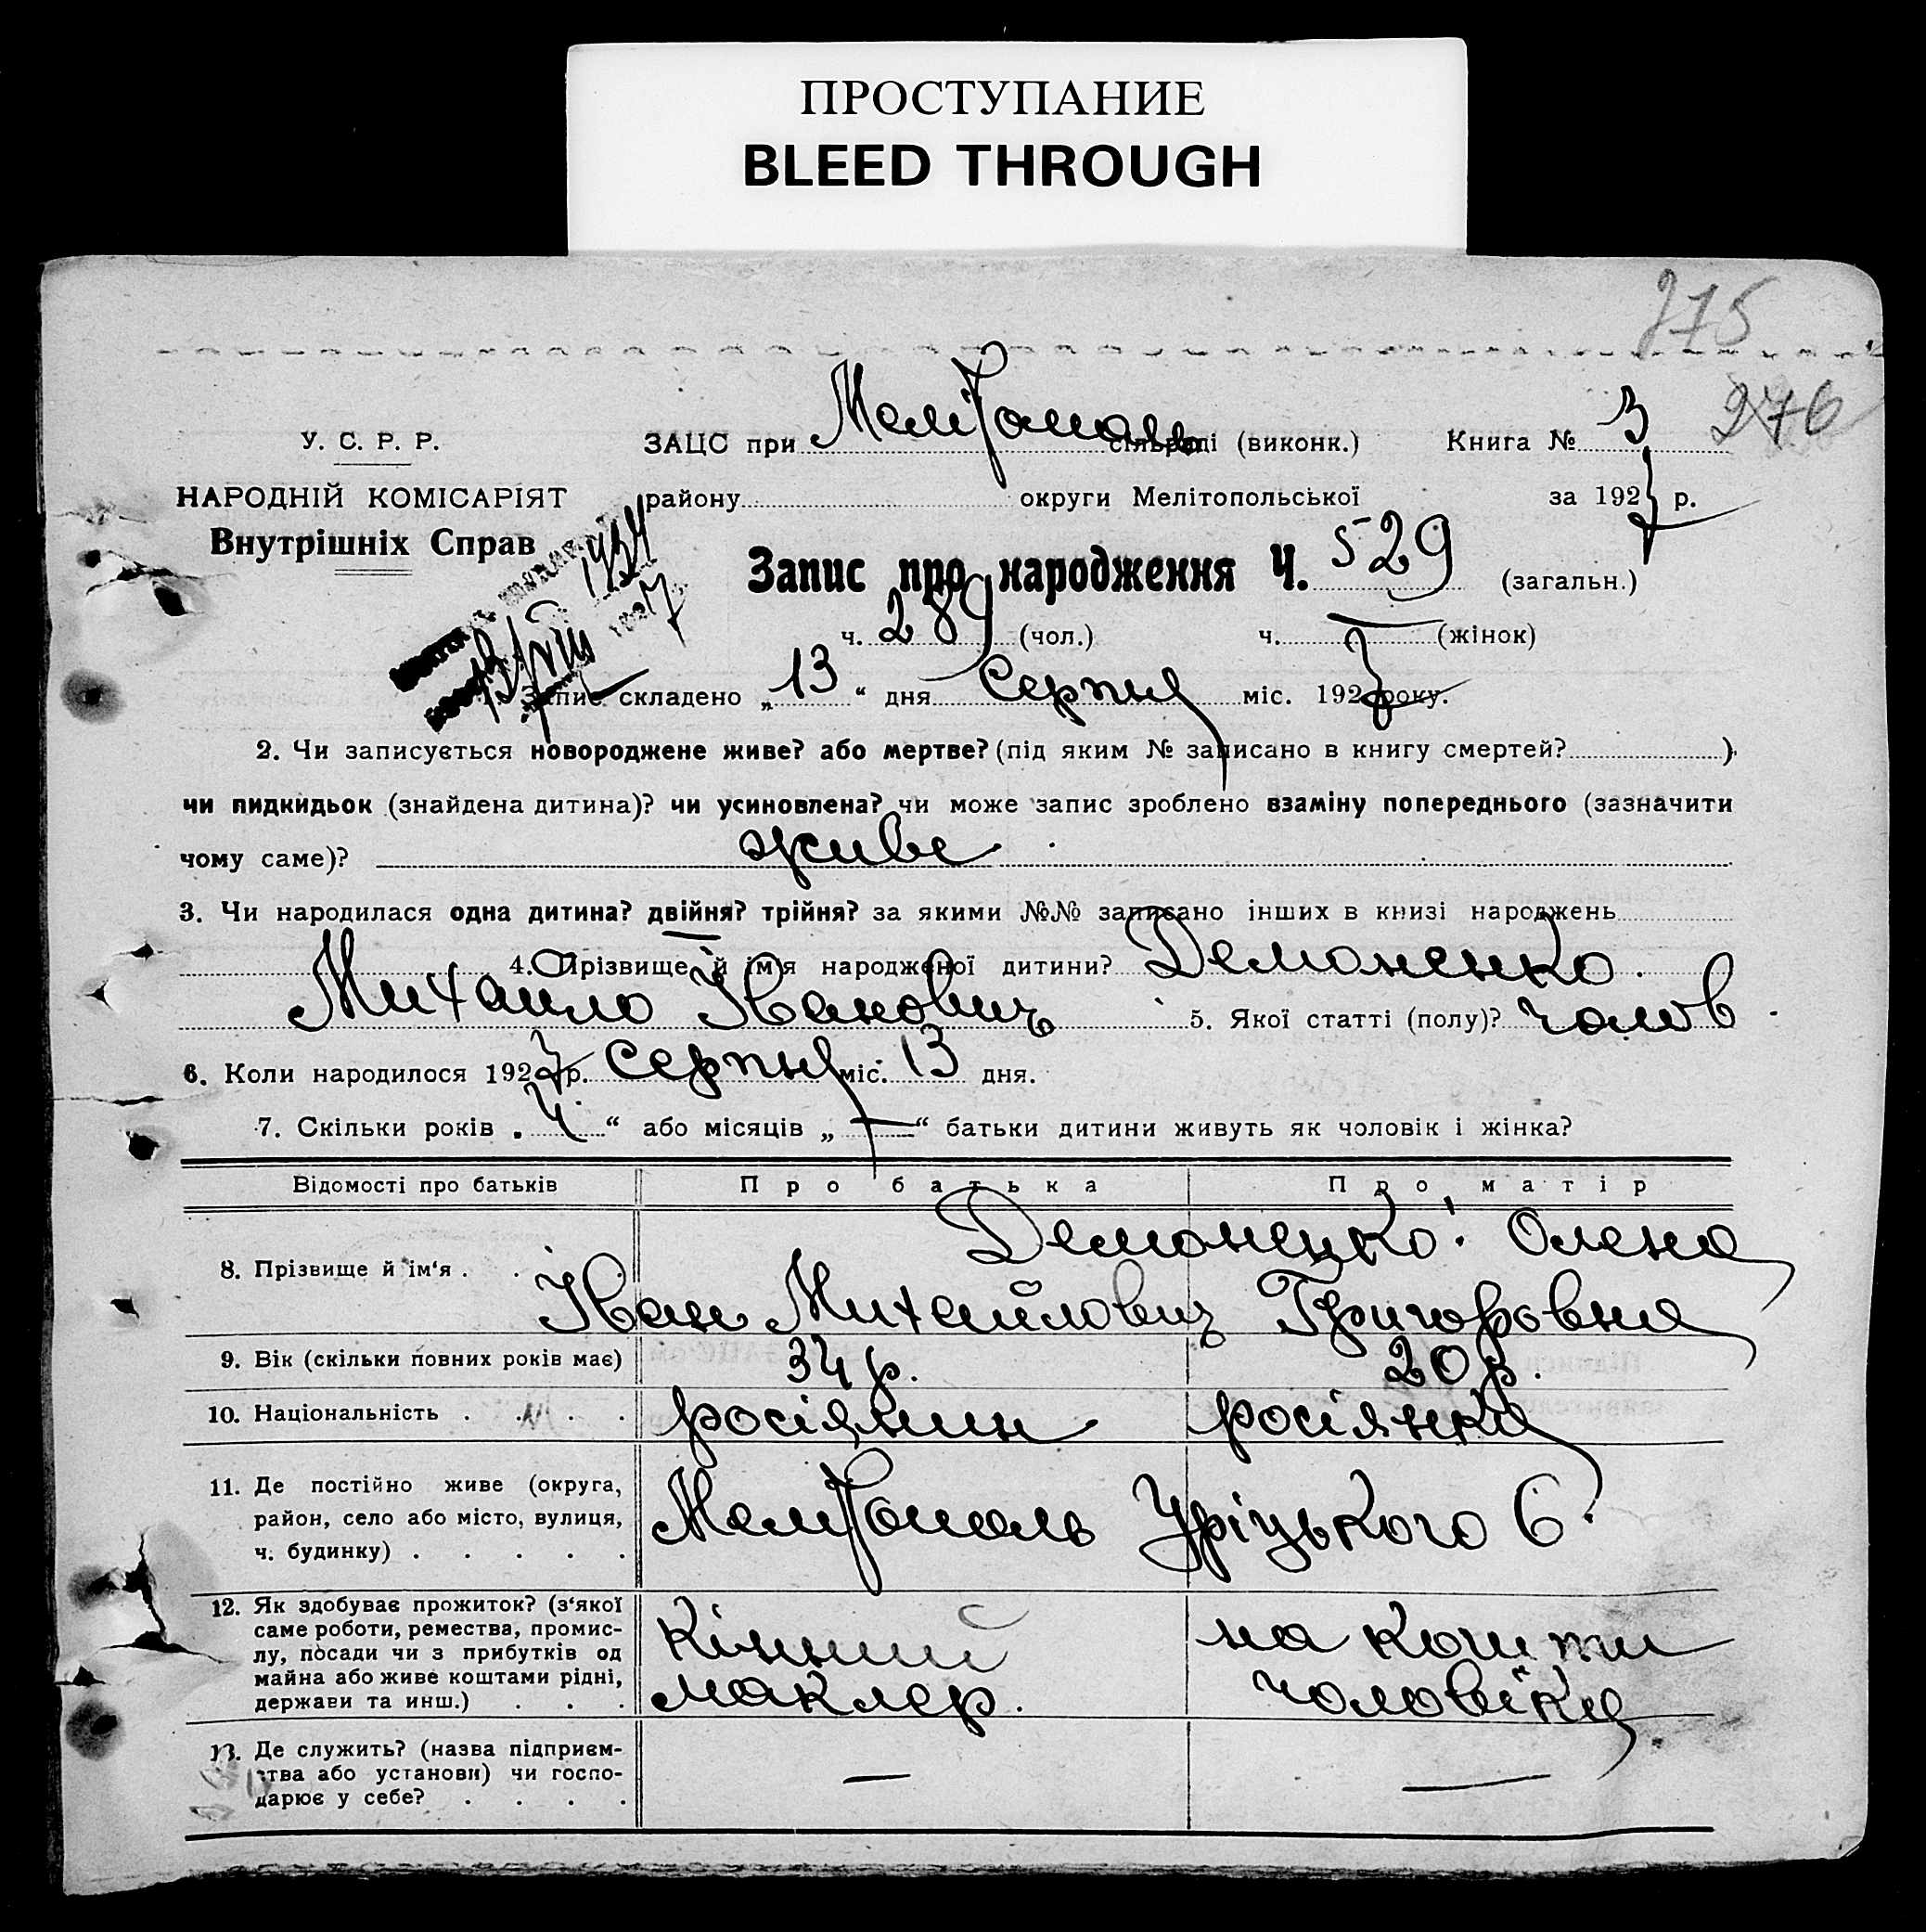 ПРОСТУПАНИЕ
BLEED THROUGH
275
276
У. С. Р. Р.
НАРОДНІЙ КОМІСАРІЯТ
Внутрішніх Справ
ЗАЦС при Мелітополь сільраді (виконк.) Книга № 3
району округи Мелітопольської за 1927 р.
Запис про народження Ч. 529 (загальн.)
ч. 289 (чол.) ч. — (жінок)
13/VIII 1927
1. Запис складено „13“ дня Серпня міс. 1927 року.
2. Чи записується новороджене живе? або мертве? (під яким № записано в книгу смертей? )
чи пидкидьок (знайдена дитина)? чи усиновлена? чи може запис зроблено взаміну попереднього (зазначити
чому саме)? живе
3. Чи народилася одна дитина? двійня? трійня? за якими №№ записано інших в книзі народжень
4. Прізвище й ім'я народженої дитини? Демоненко.
Михаило Іванович 5. Якої статті (полу)? чолов.
6. Коли народилося 1927 р. Серпня міс. 13 дня.
7. Скільки років „4“ або місяців „—“ батьки дитини живуть як чоловік і жінка?
Відомості про батьків Про батька Про матір
8. Прізвище й ім'я . . . Демоненко. Олена
Іван Михайлович Григоровна
9. Вік (скільки повних років має) 34 р. 20 р.
10. Національність . . . . росіянин росіянка
11. Де постійно живе (округа,
район, село або місто, вулиця,
ч. будинку) . . . . . Мелітополь Уріцького 6.
12. Як здобуває прожиток? (з'якої
саме роботи, ремества, промис-
лу, посади чи з прибутків од
майна або живе коштами рідні,
держави та инш.) . . . Кінний маклер. на кошти чоловіка
13. Де служить? (назва підприєм-
ства або установи) чи госпо-
дарює у себе? . . . . — —